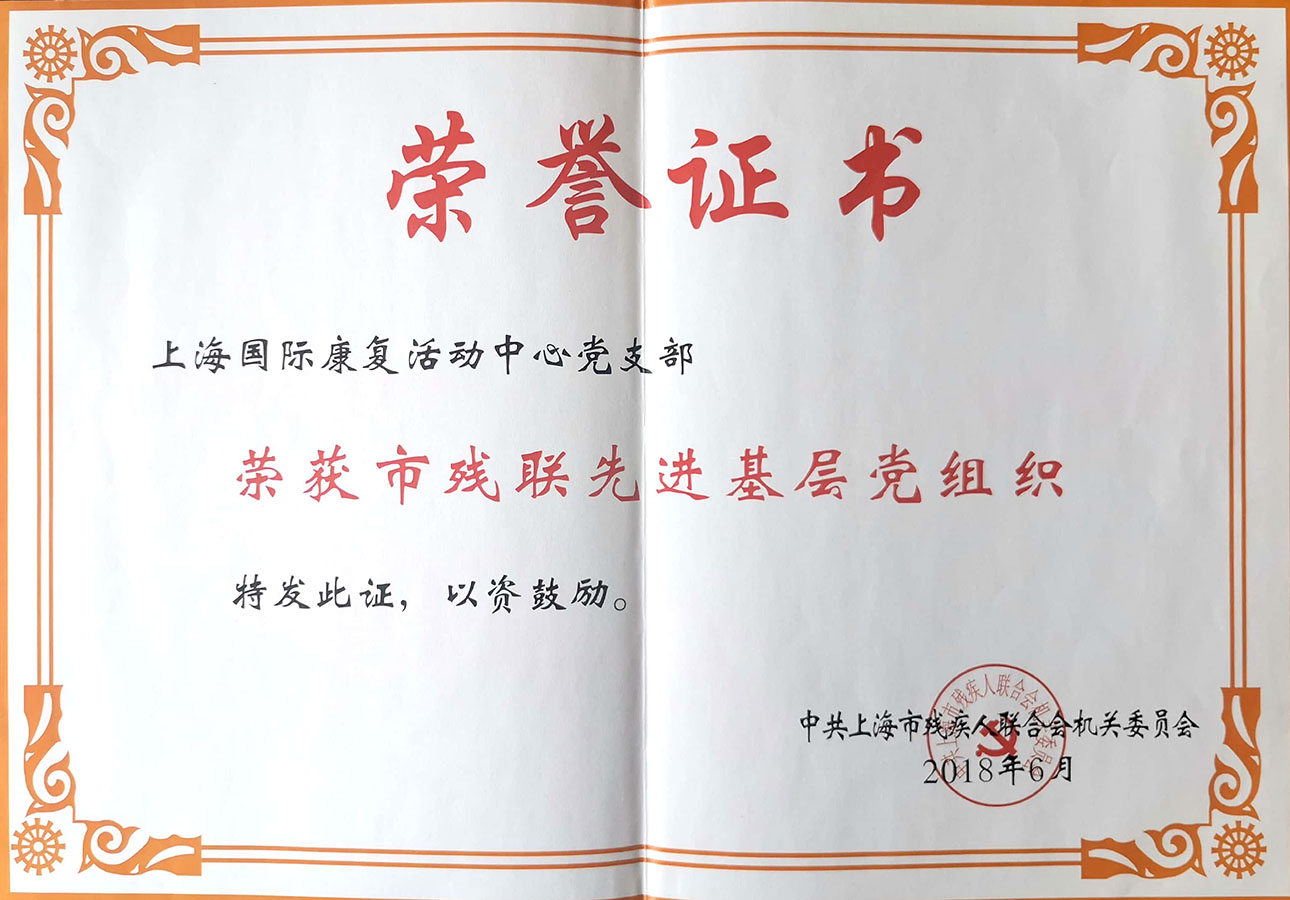 荣誉证书
上海国际康复活动中心党支部
荣获市残联先进基层党组织
特发此证，以资鼓励。
中共上海市残疾人联合会机关委员会
2018年6月
中共上海市残疾人联合会机关委员会